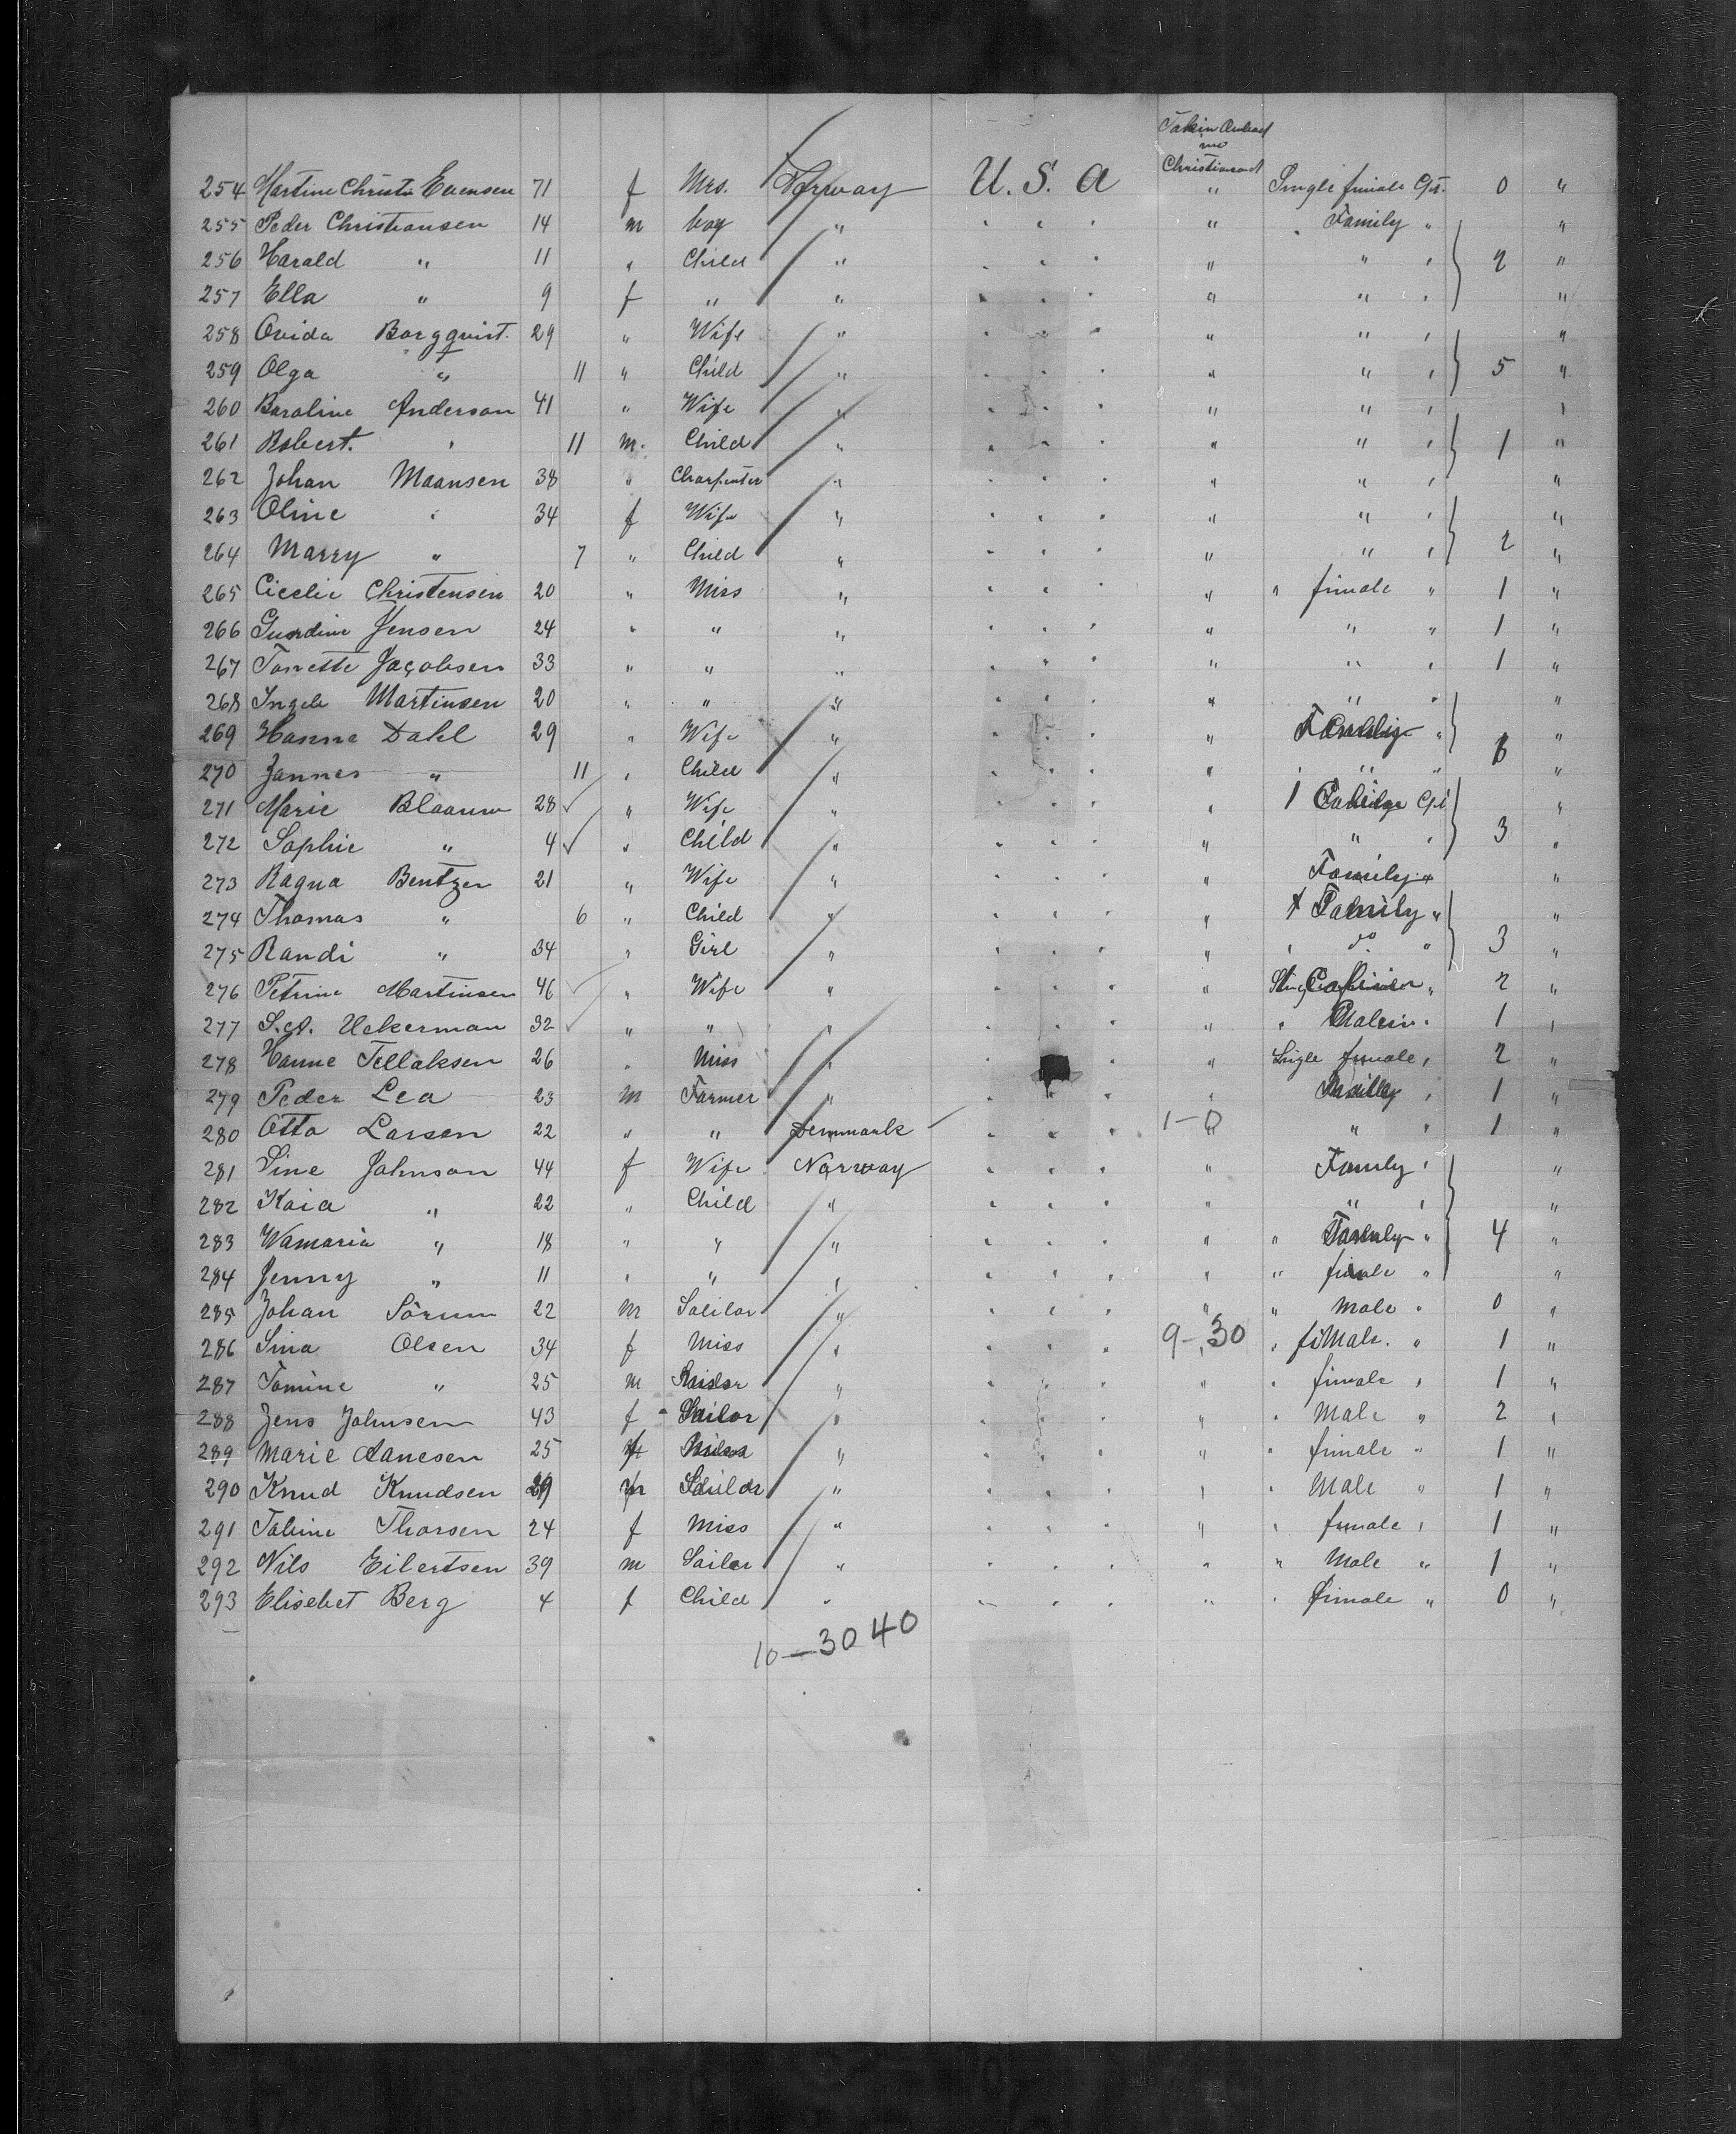 Christiansand
254 Martine Christin Evensen 71 f Mrs. Norway U. S. A " Single female Cpt. 0 "
255 Peder Christiansen 14 m boy " . . . " . Family " "
256 Harald " 11 " Child " . . . " " " 2 "
257 Ella " 9 f " " . . . " " " "
258 Ovida Borgquist. 29 " Wife " . . . " " " "
259 Olga " 11 " Child " . . . " " " 5 "
260 Baroline Anderson 41 " Wife " . . . " " " "
261 Robert. " 11 m. Child " . . . " " " 1 "
262 Johan Maansen 38 " Charpenter " . . . " " " "
263 Oline " 34 f Wife " . . . " " " "
264 Marry " 7 " Child " . . . " " " 2 "
265 Cicelie Christensen 20 " Miss " . . . " " female " 1 "
266 Gurdine Jensen 24 " " " . . . " " " 1 "
267 Tonette Jacobsen 33 " " " . . . " " " 1 "
268 Ingeb Martinsen 20 " " " . . . " " " "
269 Hanna Dahl 29 " Wife " . . . " Family " "
270 Jannes " 11 " Child " . . . " " " " 6 "
271 Marie Blaauw 28 ✓ " Wife " . . . " "
272 Sophie " 4 ✓ " Child " . . . " " " 3 "
273 Ragna Bentzen 21 " Wife " . . . " Family " "
274 Thomas " 6 " Child " . . . " Family " "
275 Randi " 34 " Girl " . . . " " do " 3 "
276 Petrine Martinsen 46 ✓ " Wife " . . . " 2 "
277 Uckerman 32 ✓ " " " . . . " " 1 "
278 Hanne Tellaksen 26 " Miss " . . . " Single female " 2 "
279 Peder Lea 23 m Farmer " . . . " 1 "
280 Otto Larsen 22 " " Denmark . . . 1-0 " " " 1 "
281 Sine Johnson 44 f Wife Norway . . . " Family " "
282 Kaia " 22 " Child " . . . " " " "
283 Wamaria " 18 " " " . . . " " Family " 4 "
284 Jenny " 11 " " " . . . " " female " "
285 Johan Sörum 22 m Sailor " . . . " " Male " 0 "
286 Sina Olsen 34 f Miss " . . . 9-30 " " feMale. " 1 "
287 Tomine " 25 m " . . . " " female " 1 "
288 Jens Johnsen 43 f Sailor " . . . " " Male " 2 "
289 Marie Aanesen 25 f " . . . " " female " 1 "
290 Knud Knudsen 29 m Sailor " . . . " " Male " 1 "
291 Tabine Thorsen 24 f Miss " . . . " " female " 1 "
292 Nils Eilertsen 39 m Sailor " . . . " " Male " 1 "
293 Elisebet Berg 4 f Child " . . . " " female " 0 "
10-30 40